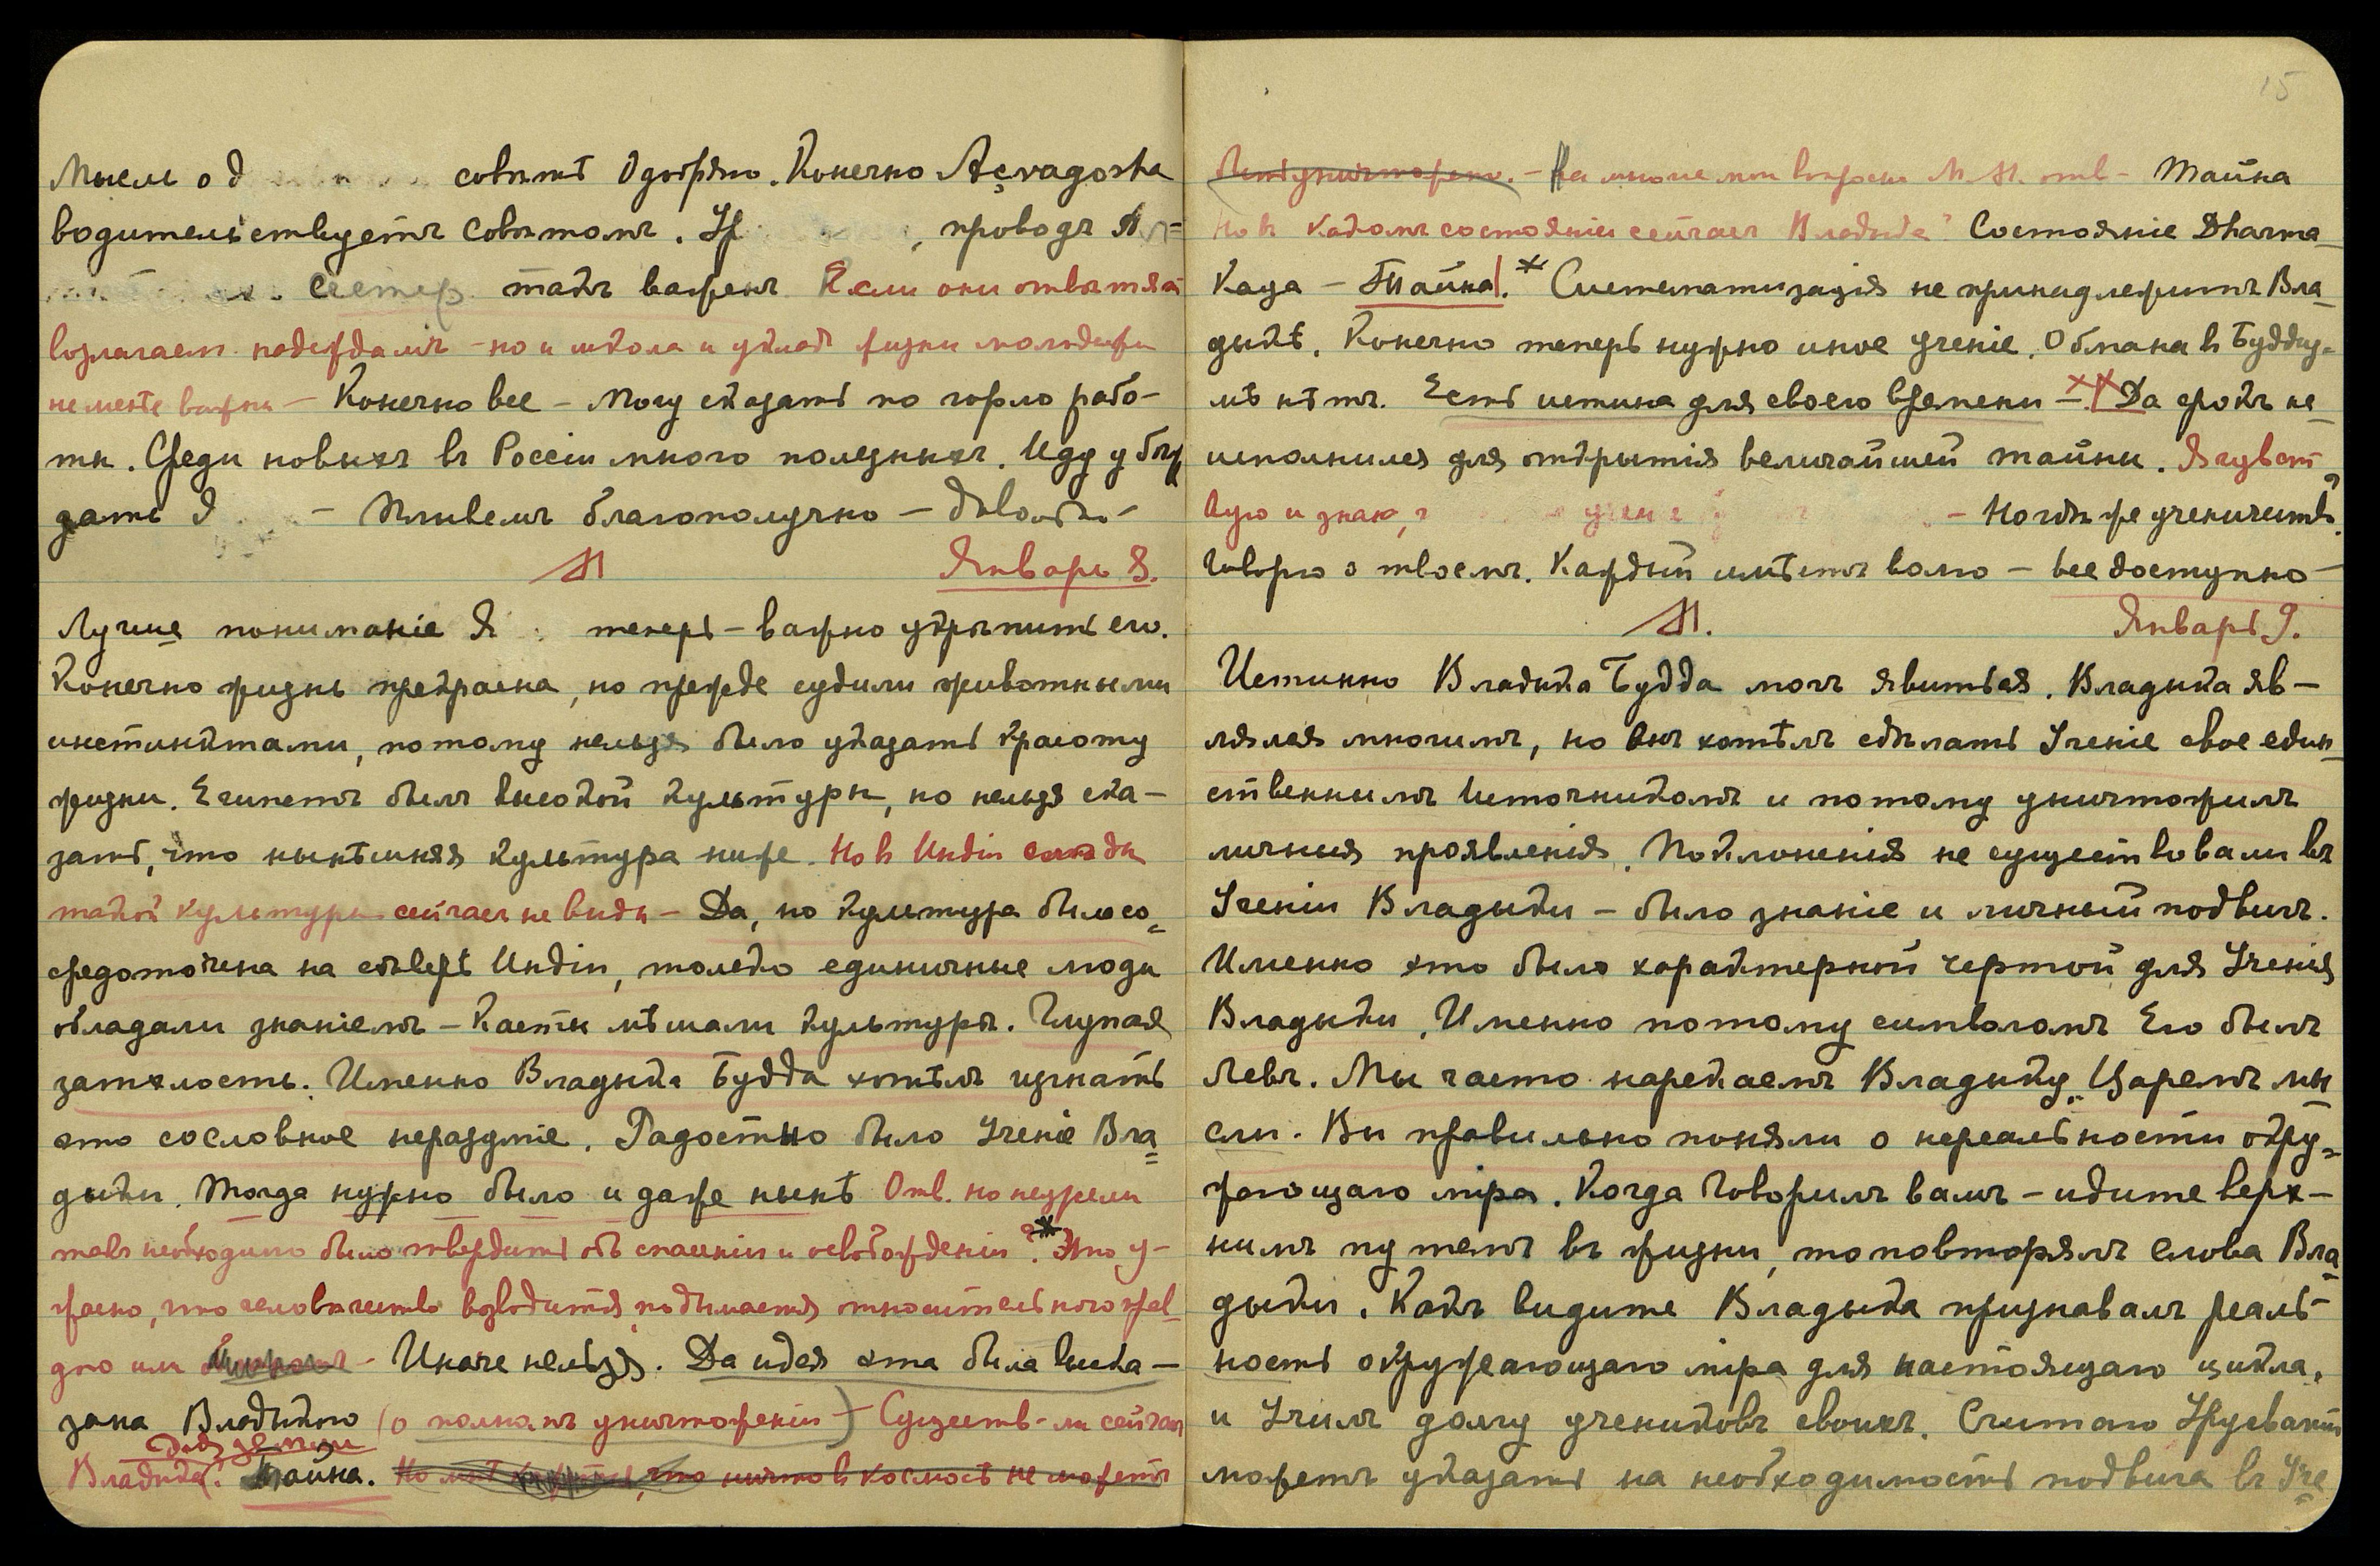 Мысль о д совѣтѣ Одобряю. Конечно Açvagosha
водительствуетъ Совѣтомъ. Ур , проводъ
Сестер такъ важенъ Если они отвѣтятъ
возлагаем. надеждамъ – но и школа и укладъ жизни молодежи
не менѣе важны – Конечно все – Могу сказать по горло рабо-
ты. Среди новыхъ въ Россіи много полезныхъ. Иду убѣ
дать Я – Плывемъ благополучно – довольно –
М Январь 8.
Лучше пониманіе Я теперь – важно укрѣпить его.
Конечно жизнь прекрасна, но прежде судили животными
инстинктами, потому нельзя было указать красоту
жизни. Египетъ былъ высокой культуры, но нельзя ска-
зать, что нынѣшняя культура ниже. Но в Индіи слѣды
такой культуры сейчасъ не видны – Да, но культура была со-
средоточена на сѣверѣ Индіи, только единичные люди
обладали знаніемъ – Касты мѣшали культурѣ. Глупая
затхлость. Именно Владыка Будда хотѣлъ изгнать
это сословное неразуміе. Радостно было Ученіе Вла
дыки. Тогда нужно было и даже нынѣ Отв. но неужели
такъ необходимо было твердить объ спасеніи и освобожденіи?* Это у-
жасно, что человѣчество возводится, подымается относительно жал-
дно или – Иначе нельзя. Да идея эта была выска-
зана Владыкою (о полномъ уничтоженіи –) Существ. – ли сейчас
Владыка? Тайна. Но мнѣ кажется, что ничто в космосѣ не можетъ
15
быть уничтожено. – На многие мои вопросы М. М. отв – Тайна
Но в какомъ состояніи сейчасъ Владыка? Состояніе Dharma-
Kaya – Тайна!.* Систематизація не принадлежитъ Вла-
дыкѣ. Конечно теперь нужно иное ученіе. Обмана в Буддиз-
мѣ нѣтъ. Есть истина для своего времени –. Да срокъ не
исполнился для открытія величайшей тайны. Я чувст
вую и знаю, – Но гдѣ же ученичество?
Говорю о твоемъ. Каждый имѣетъ волю – все доступно –
М. Январь 9.
Истинно Владыка Будда могъ явиться. Владыка яв-
лялся многимъ, но Онъ хотѣлъ сдѣлать Ученіе свое един
ственнымъ Источникомъ и потому уничтожилъ
личныя проявленія. Поклоненія не существовали въ
Ученіи Владыки – было знаніе и личный подвигъ.
Именно это было характерной чертой для Ученія
Владыки. Именно потому символомъ Его былъ
Левъ. Мы часто нарекаемъ Владыку „Царемъ мы
сли. Вы правильно поняли о нереальности окру-
жающаго міра. Когда Говорилъ вамъ – идите верх-
нимъ путемъ въ жизни, то повторялъ слова Вла
дыки. Какъ видите Владыка признавалъ реаль-
ность окружающаго міра для настоящаго цикла,
и Училъ долгу учениковъ своихъ. Считаю Урусвати
можетъ указать на необходимость подвига въ Уче